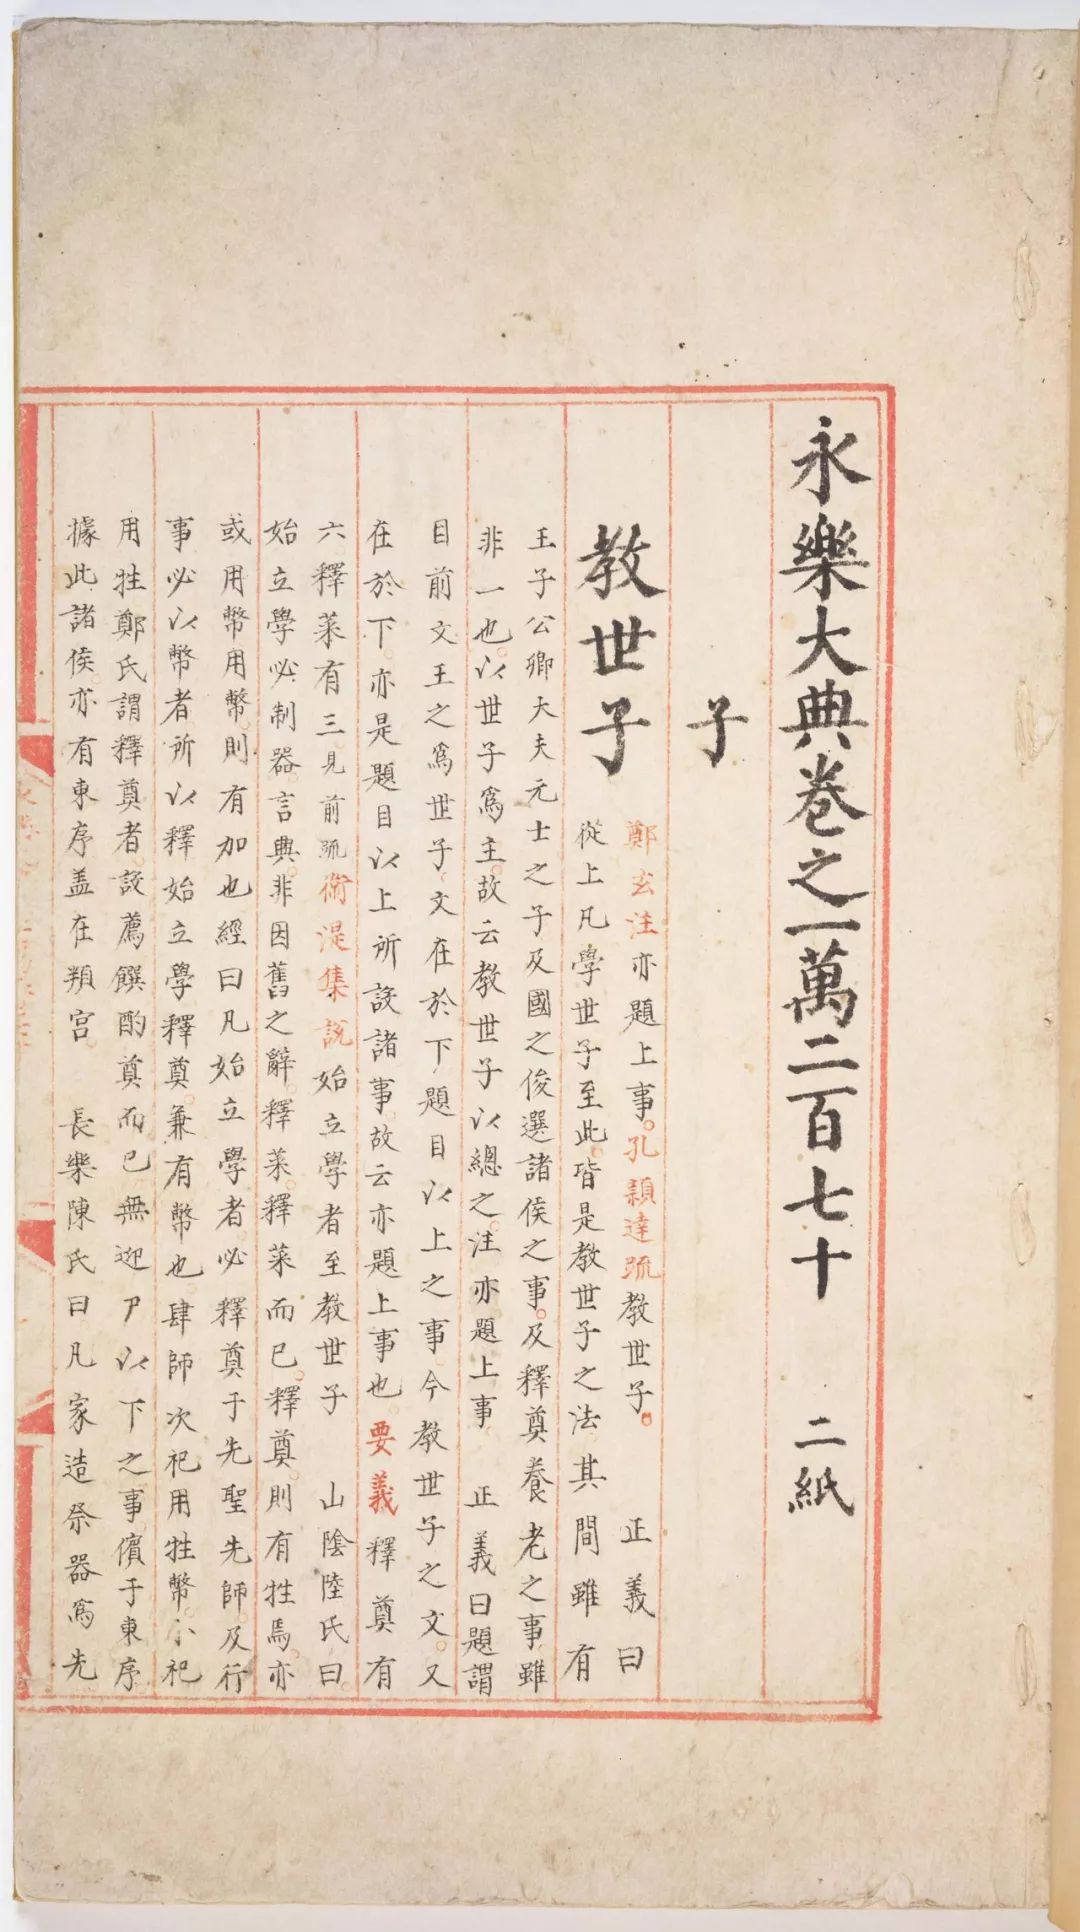 永樂大典卷之一萬二百七十 二紙
子
教世子
鄭玄注亦題上事。孔穎達疏教世子。 正義曰
從上凡學世子至此。皆是教世子之法。其間雖有
王子公卿大夫元士之子及國之俊選諸侯之事。及釋奠養老之事。雖
非一也。以世子爲主。故云教世子以總之。注亦題上事 正義曰題謂
目前文王之爲世子。文在於下題目以上之事。今教世子之文。又
在於下。亦是題目以上所說諸事。故云亦題上事也。要義釋奠有
六。釋菜有三。見前疏衛湜集說始立學者至教世子 山陰陸氏曰。
始立學必制器。言興。非因舊之辭。釋菜。釋菜而已。釋奠。則有牲焉。亦
或用幣。用幣。則有加也。經曰凡始立學者。必釋奠于先聖先師。及行
事必以幣者。所以釋始立學釋奠。兼有幣也。肆師次祀用牲幣。小祀
用牲。鄭氏謂釋奠者。設薦饌酌奠而已。無迎尸以下之事。儐于東序。
據此諸侯。亦有東序。盖在頖宮。 長樂陳氏曰凡家造祭器爲先